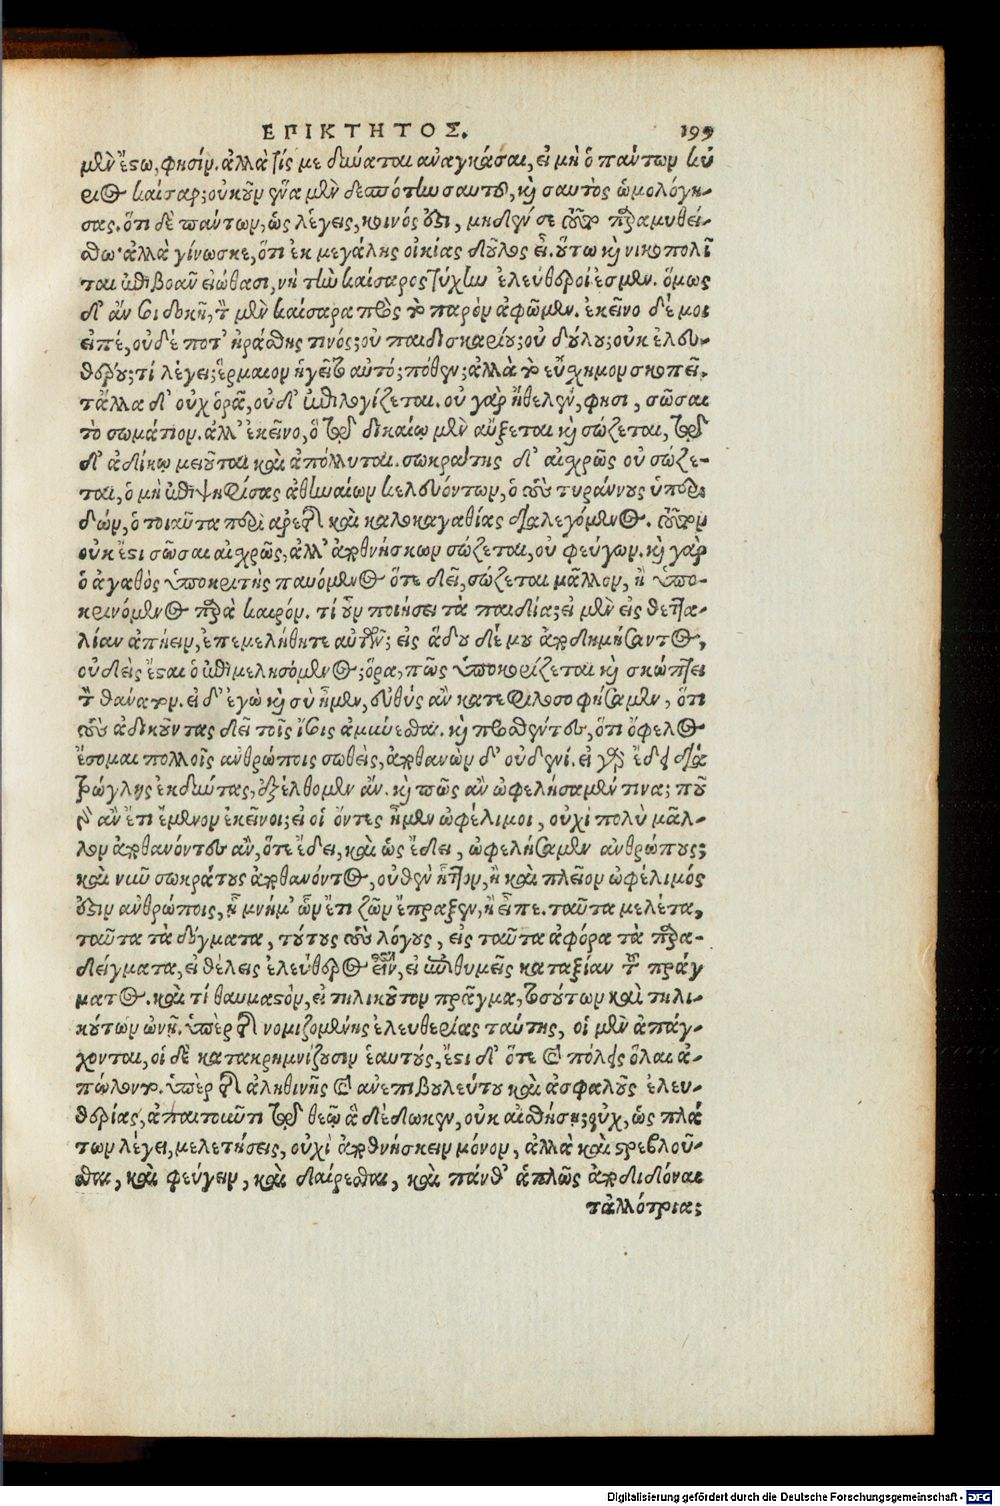 ΕΠΙΚΤΗΤΟΣ. 199
μὲν ἔστω, φησίν. ἀλλὰ τίς με δύναται ἀναγκάσαι, εἰ μὴ ὁ πάντων κύ
ριος καίσαρ; οὐκοῦν ἕνα μὲν δεσπότην σαυτοῦ, καὶ σαυτὸς ὡμολόγη-
σας. ὅτι δὲ πάντων, ὡς λέγεις, κοινός ἐστι, μηδέν σε τοῦτο παραμυθεί-
σθω· ἀλλὰ γίνωσκε, ὅτι ἐκ μεγάλης οἰκίας δοῦλος εἶ. οὕτω καὶ νικοπολῖ
ται ἐπιβοᾶν εἰώθασι, νὴ τὴν καίσαρος τύχην ἐλεύθεροί ἐσμεν. ὅμως
δ' ἄν σοι δοκῇ, τὸν μὲν καίσαρα πρὸς τὸ παρὸν ἀφῶμεν. ἐκεῖνο δέ μοι
εἰπέ, οὐδέ ποτ' ἠράσθης τινός; οὐ παιδισκαρίου; οὐ δούλου; οὐκ ἐλευ-
θέρου; τί λέγει; ἕρμαιον ἡγεῖτο αὐτό; πόθεν; ἀλλὰ τὸ εὔσχημον σκοπεῖ.
τἄλλα δ' οὐχ ὁρᾷ, οὐδ' ἐπιλογίζεται. οὐ γὰρ ἤθελεν, φησι, σῶσαι
τὸ σωμάτιον. ἀλλ' ἐκεῖνο, ὃ τῷ δικαίῳ μὲν αὔξεται καὶ σώζεται, τῷ
δ' ἀδίκῳ μειοῦται καὶ ἀπόλλυται. σωκράτης δ' αἰσχρῶς οὐ σώζε-
ται, ὁ μὴ ἐπιψηφίσας ἀθηναίων κελευόντων, ὁ τοὺς τυράννους ὑπερι
δών, ὁ τοιαῦτα περὶ ἀρετῆς καὶ καλοκαγαθίας διαλεγόμενος. τοῦτον
οὐκ ἔστι σῶσαι αἰσχρῶς, ἀλλ' ἀποθνήσκων σώζεται, οὐ φεύγων. καὶ γὰρ
ὁ ἀγαθὸς ὑποκριτὴς παυόμενος ὅτε δεῖ, σώζεται μᾶλλον, ἢ ὑπο-
κρινόμενος παρὰ καιρόν. τί οὖν ποιήσει τὰ παιδία; εἰ μὲν εἰς θετταλ-
λίαν ἀπῄειν, ἐπεμελήθητε αὐτῶν; εἰς ᾅδου δέ μου ἀποδημήσαντος,
οὐδεὶς ἔσται ὁ ἐπιμελησόμενος; ὅρα, πῶς ὑποκορίζεται καὶ σκώπτει
τὸν θάνατον. εἰ δ' ἐγὼ καὶ σὺ ἦμεν, εὐθὺς ἂν κατεφιλοσοφήσαμεν, ὅτι
τοὺς ἀδικοῦντας δεῖ τοῖς ἴσοις ἀμύνεσθαι. καὶ προσθέντες, ὅτι ὄφελος
ἔσομαι πολλοῖς ἀνθρώποις σωθεὶς, ἀποθανὼν δ' οὐδενί. εἰ γὰρ ἔδει διὰ
τρώγλης ἐκδύντας, ἐξέλθομεν ἄν. καὶ πῶς ἂν ὠφελήσαμέν τινα; ποῦ
γὰρ ἂν ἔτι ἔμενον ἐκεῖνοι; εἰ οἱ ὄντες ἦμεν ὠφέλιμοι, οὐχὶ πολὺ μᾶλ-
λον ἀποθανόντες ἂν, ὅτε ἔδει, καὶ ὡς ἔδει, ὠφελήσαμεν ἀνθρώπους;
καὶ νῦν σωκράτους ἀποθανόντος, οὐθὲν ἧττον, ἢ καὶ πλεῖον ὠφέλιμός
ἐστιν ἀνθρώποις, ἡ μνήμ' ὧν ἔτι ζῶν ἔπραξεν, ἢ εἶπε. ταῦτα μελέτα,
ταῦτα τὰ δόγματα, τούτους τοὺς λόγους, εἰς ταῦτα ἀφόρα τὰ παρα-
δείγματα, εἰ θέλεις ἐλεύθερος εἶναι, εἰ ἐπιθυμεῖς καταξίαν τοῦ πράγ
ματος. καὶ τί θαυμαστὸν, εἰ τηλικοῦτον πρᾶγμα, τοσούτων καὶ τηλι-
κούτων ὠνῇ. ὑπὲρ τῆς νομιζομένης ἐλευθερίας ταύτης, οἱ μὲν ἀπάγ-
χονται, οἱ δὲ κατακρημνίζουσιν ἑαυτούς, ἔστι δ' ὅτε καὶ πόλεις ὅλαι ἀ-
πώλοντο. ὑπὲρ τῆς ἀληθινῆς καὶ ἀνεπιβουλεύτου καὶ ἀσφαλοῦς ἐλευ-
θερίας, ἀπαιτοῦντι τῷ θεῷ ἃ δέδωκεν, οὐκ αἰσθήσῃ; οὐχ, ὡς πλά
των λέγει, μελετήσεις, οὐχὶ ἀποθνήσκειν μόνον, ἀλλὰ καὶ στρεβλοῦ-
σθαι, καὶ φεύγειν, καὶ δαίρεσθαι, καὶ πάνθ' ἁπλῶς ἀποδιδόναι
τἀλλότρια;